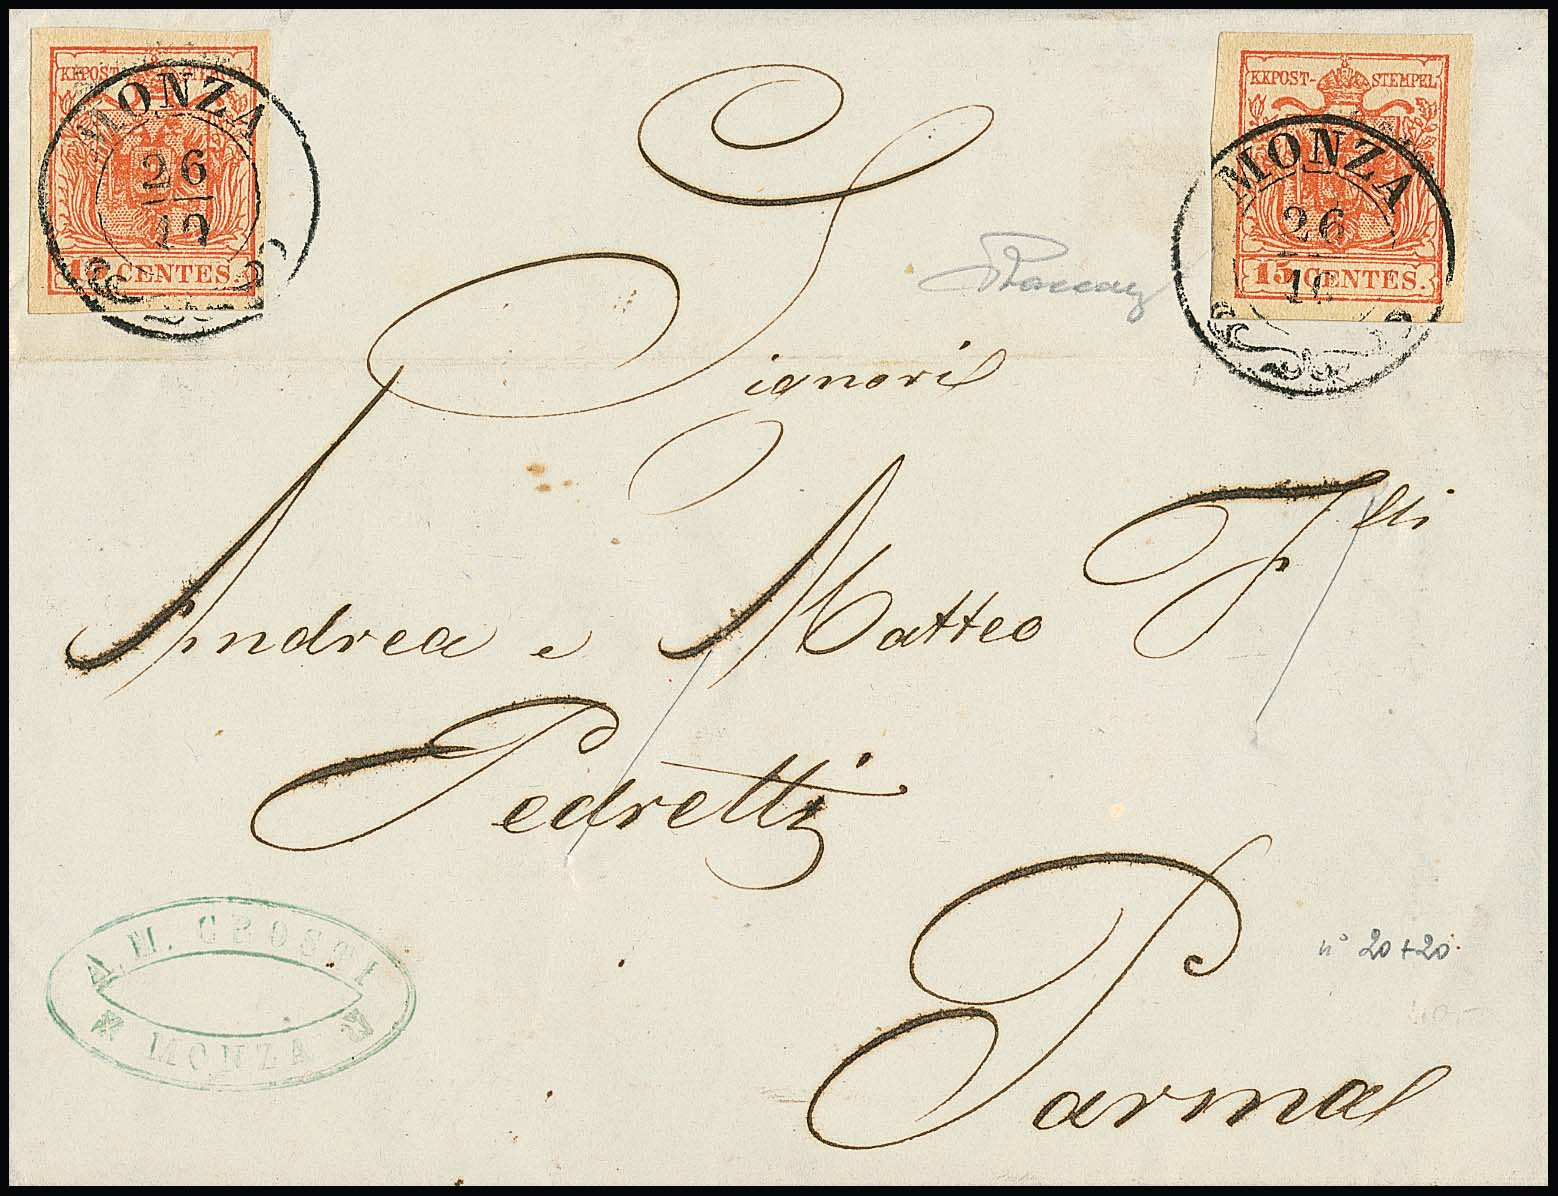 KKPOST-STEMPEL
MONZA
26
10
15 CENTES.
KKPOST-STEMPEL
MONZA
26
10
15 CENTES.
Signori
Andrea e Matteo Flli
Pedretti
Parma
A. M. GROSTI
MONZA
n° 20+20.